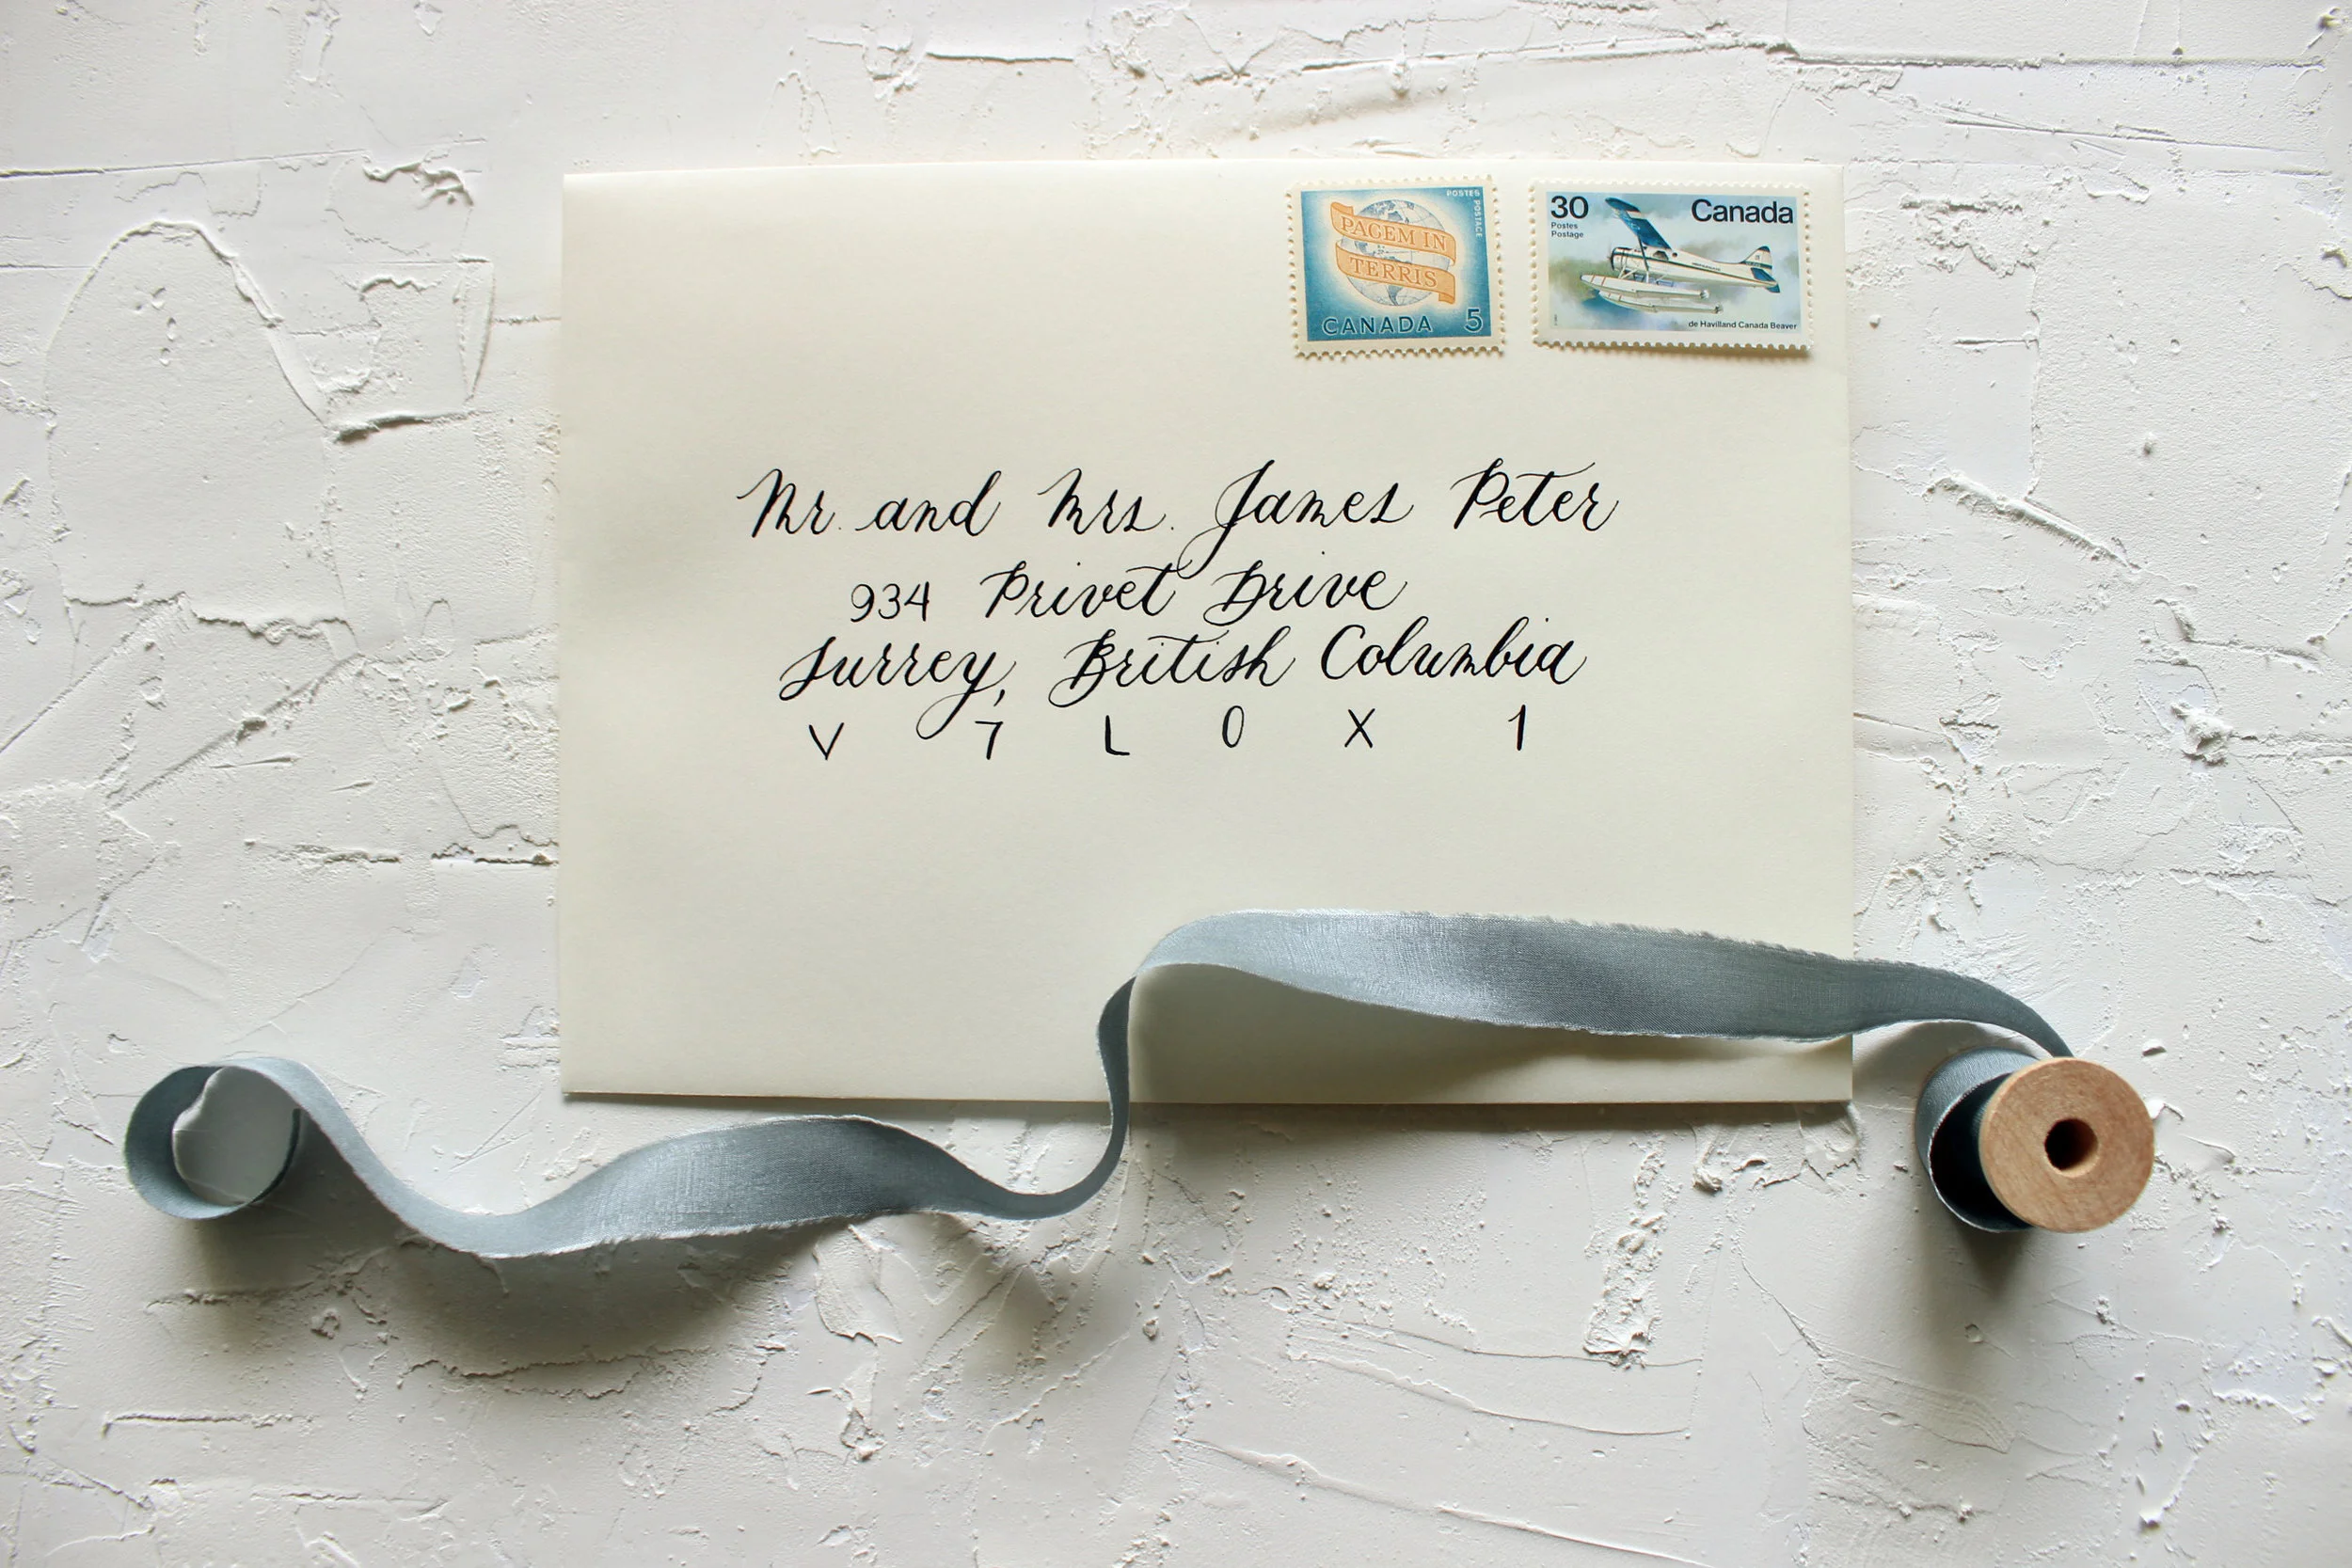 POSTES POSTAGE
PACEM IN
TERRIS
CANADA 5
30 Canada
Postes
Postage
de Havilland Canada Beaver
Mr. and Mrs. James Peter
934 Privet Drive
Surrey, British Columbia
V 7 L 0 X 1